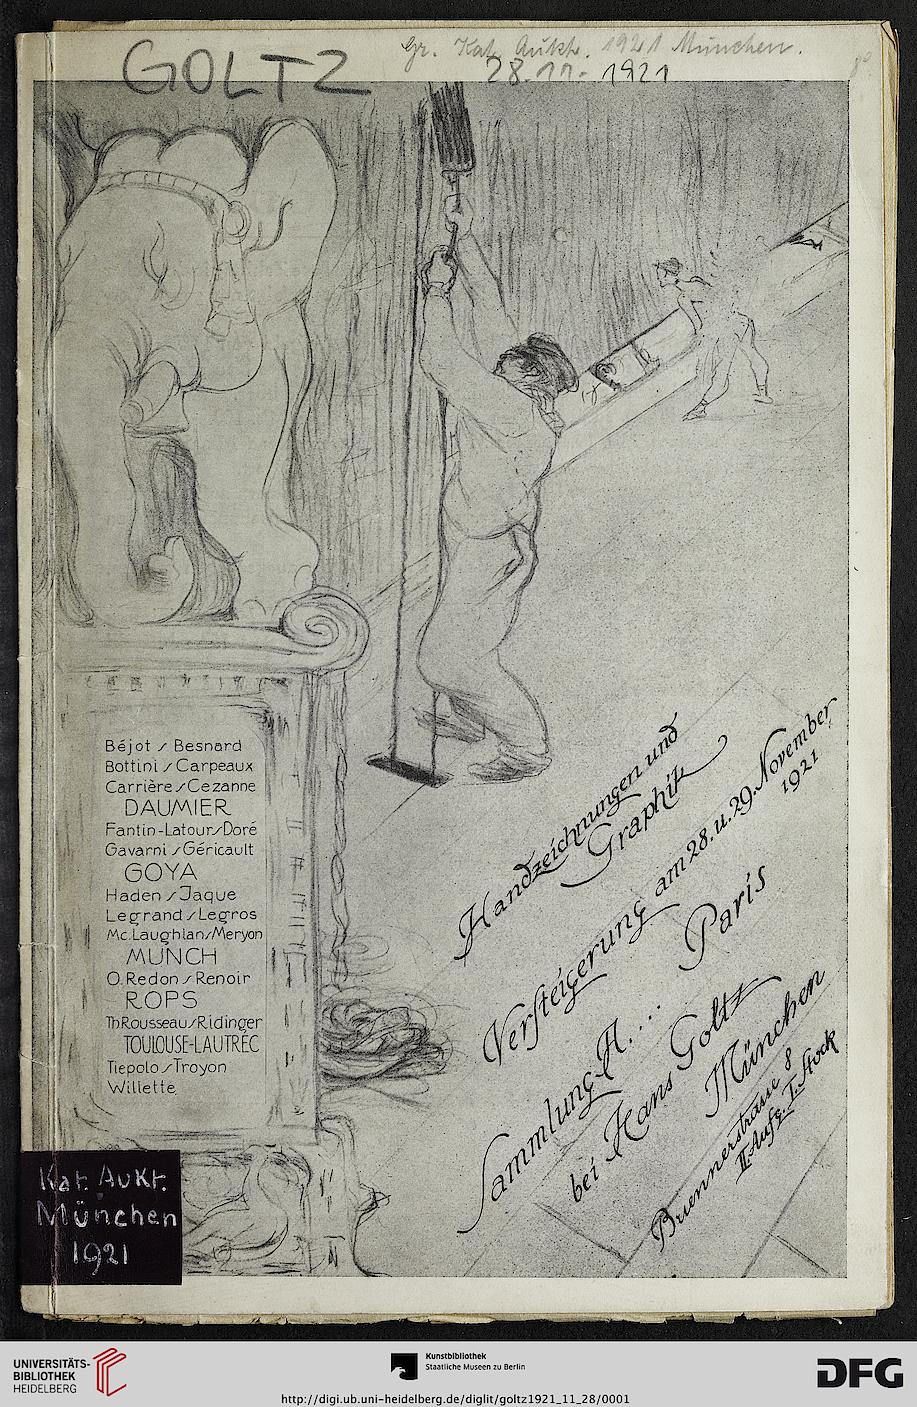 GOLTZ
Gr. Kat. Aukt. 1921 München.
28.11.1921
Béjot / Besnard
Bottini / Carpeaux
Carrière / Cezanne
DAUMIER
Fantin-Latour / Doré
Gavarni / Géricault
GOYA
Haden / Jaque
Legrand / Legros
Mc.Laughlan / Meryon
MUNCH
O. Redon / Renoir
ROPS
Th Rousseau / Ridinger
TOULOUSE-LAUTREC
Tiepolo / Troyon
Willette
Handzeichnungen und
Graphik
Versteigerung am 28. u. 29. November
1921
Sammlung A. ... Paris
bei Hans Goltz
München
Briennerstrasse 8
II. Aufg. I. Stock
Kat. Aukt.
München
1921
UNIVERSITÄTS-
BIBLIOTHEK
HEIDELBERG
Kunstbibliothek
Staatliche Museen zu Berlin
DFG
http://digi.ub.uni-heidelberg.de/diglit/goltz1921_11_28/0001